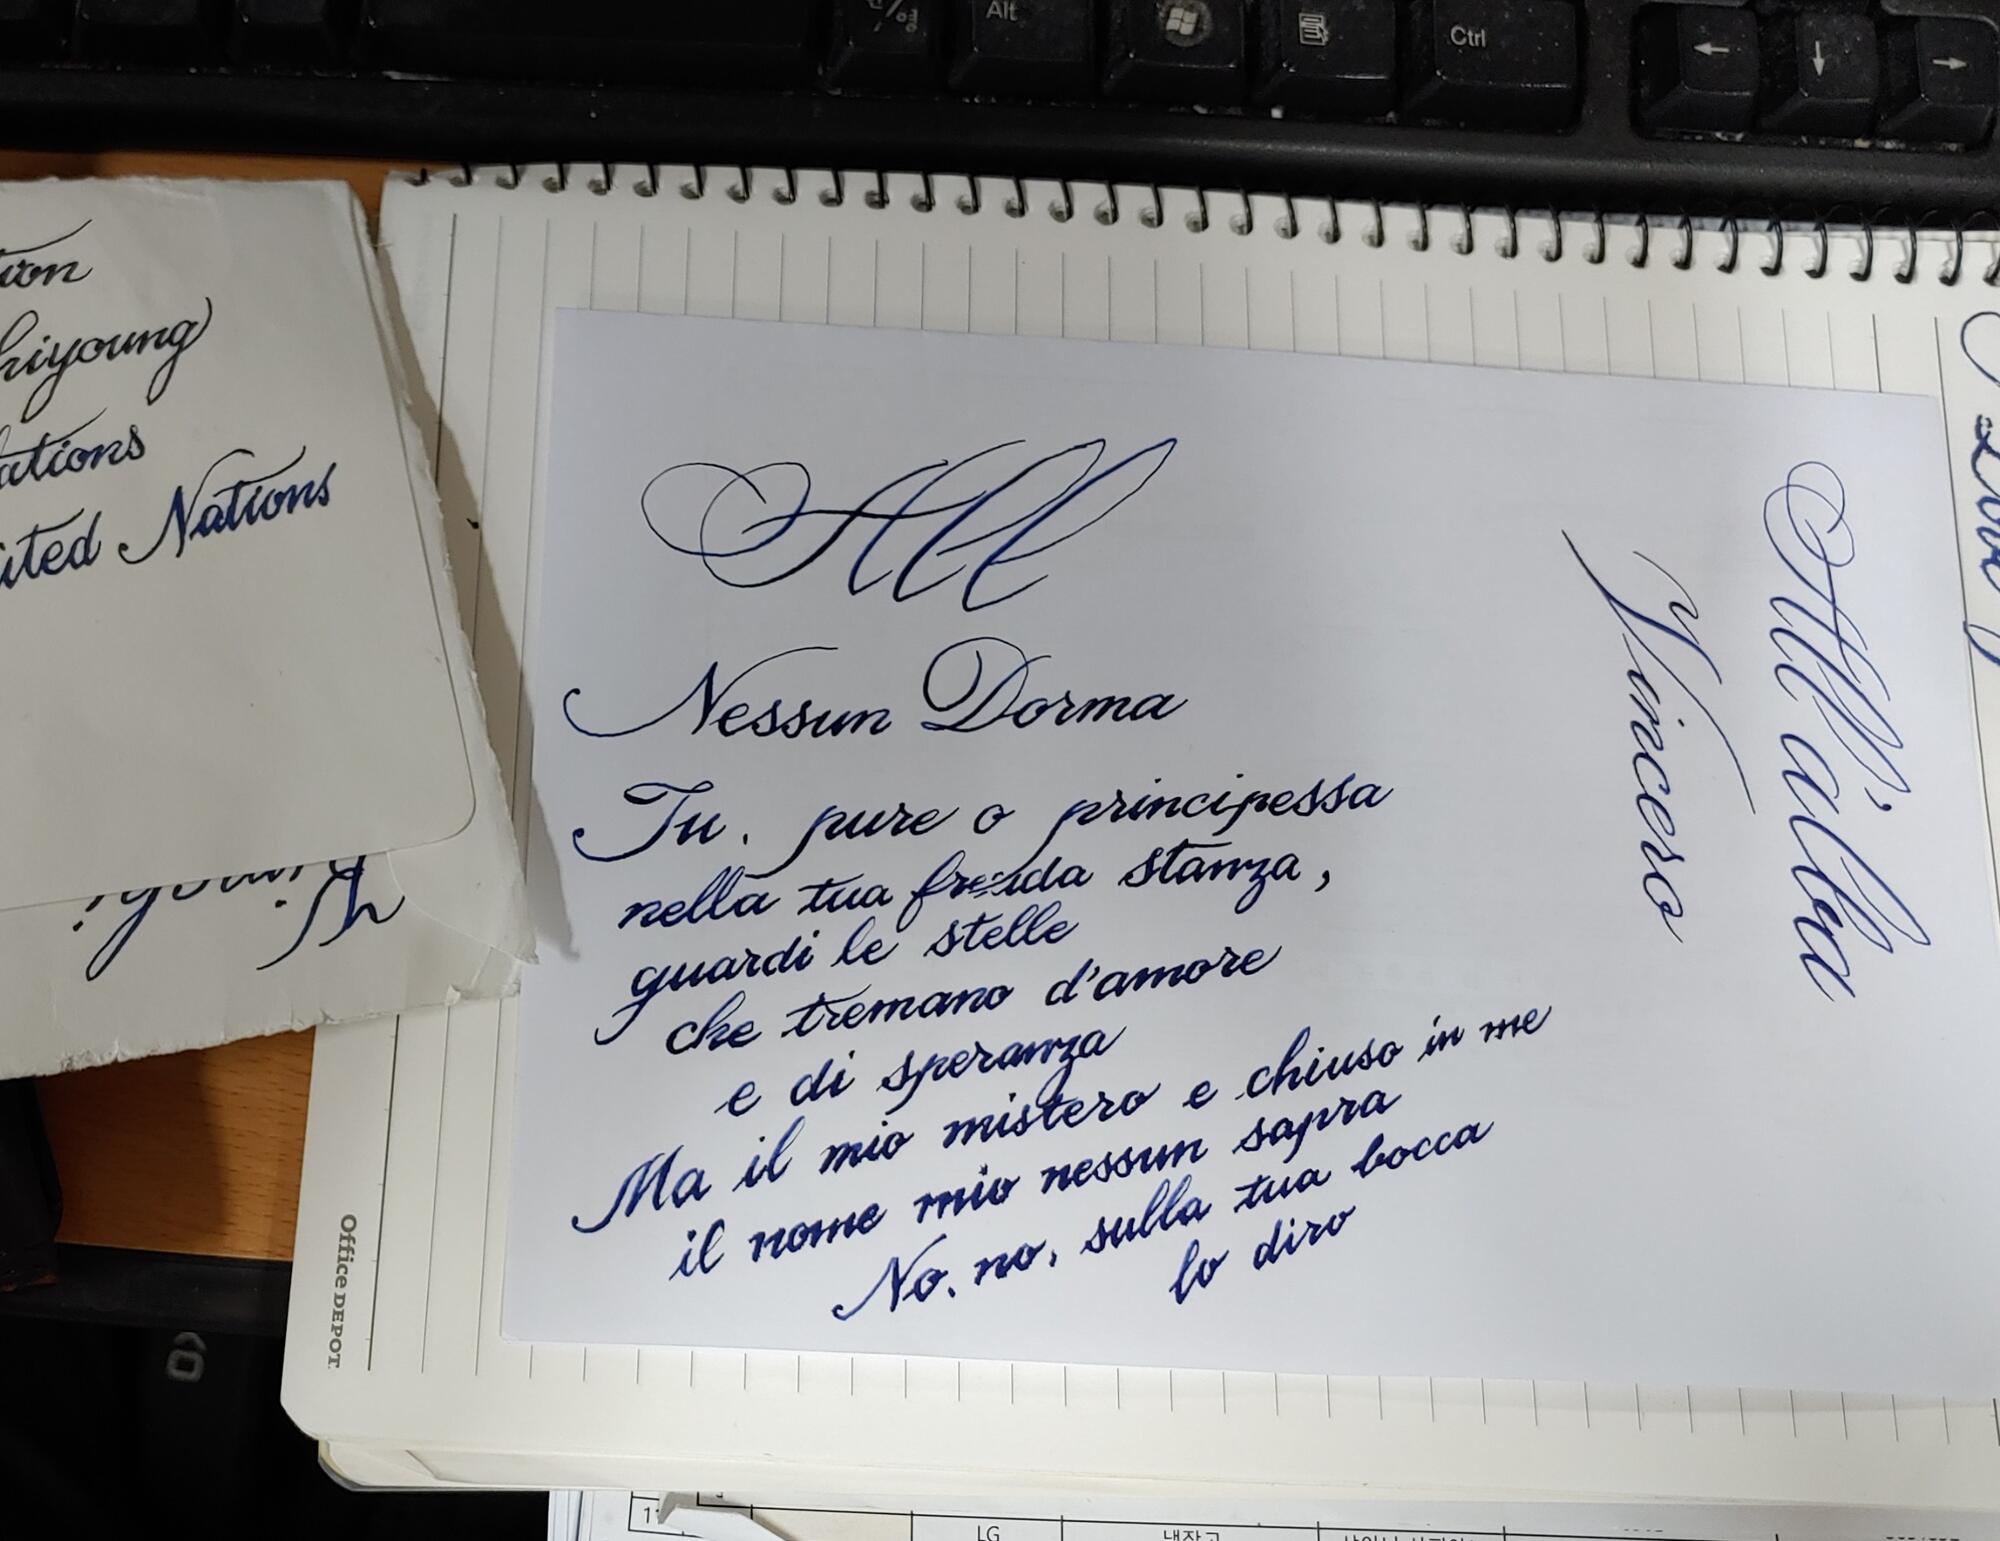 Alt
Ctrl
tion
hiyoung
lations
ited Nations
Kimchi
All
Nessun Dorma
Tu. pure o principessa
nella tua fredda stanza,
guardi le stelle
che tremano d'amore
e di speranza
Ma il mio mistero e chiuso in me
il nome mio nessun sapra
No. no. sulla tua bocca
lo diro
All'alba
Vincero
Love
Office DEPOT
11
LG
냉장고